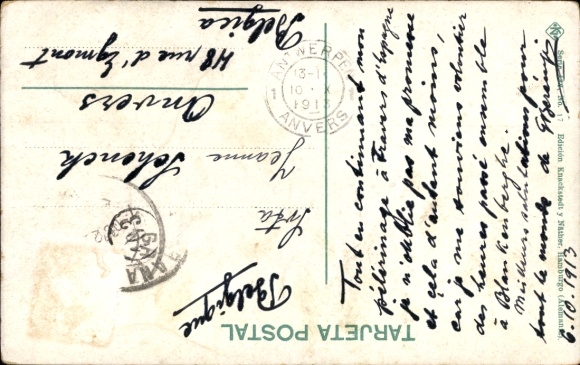 TARJETA POSTAL
Tout en continuant mon
pélerinage à travers d'Espagne
je n'oublie pas ma promesse
et cela d'autant moins,
car je me souviens volontier
des heures passé ensemble
à Blankenberghe.
Meilleurs salutations pour
tout le monde de
6.10.13
Belgique
Srta
Jeanne Schenck
Anvers
48 rue d'Egmont
Belgica
ANTWERPEN
13-1
1
10 X
1913
ANVERS
17 Edición Knackstedt y Näther, Hamburgo (Alemania)